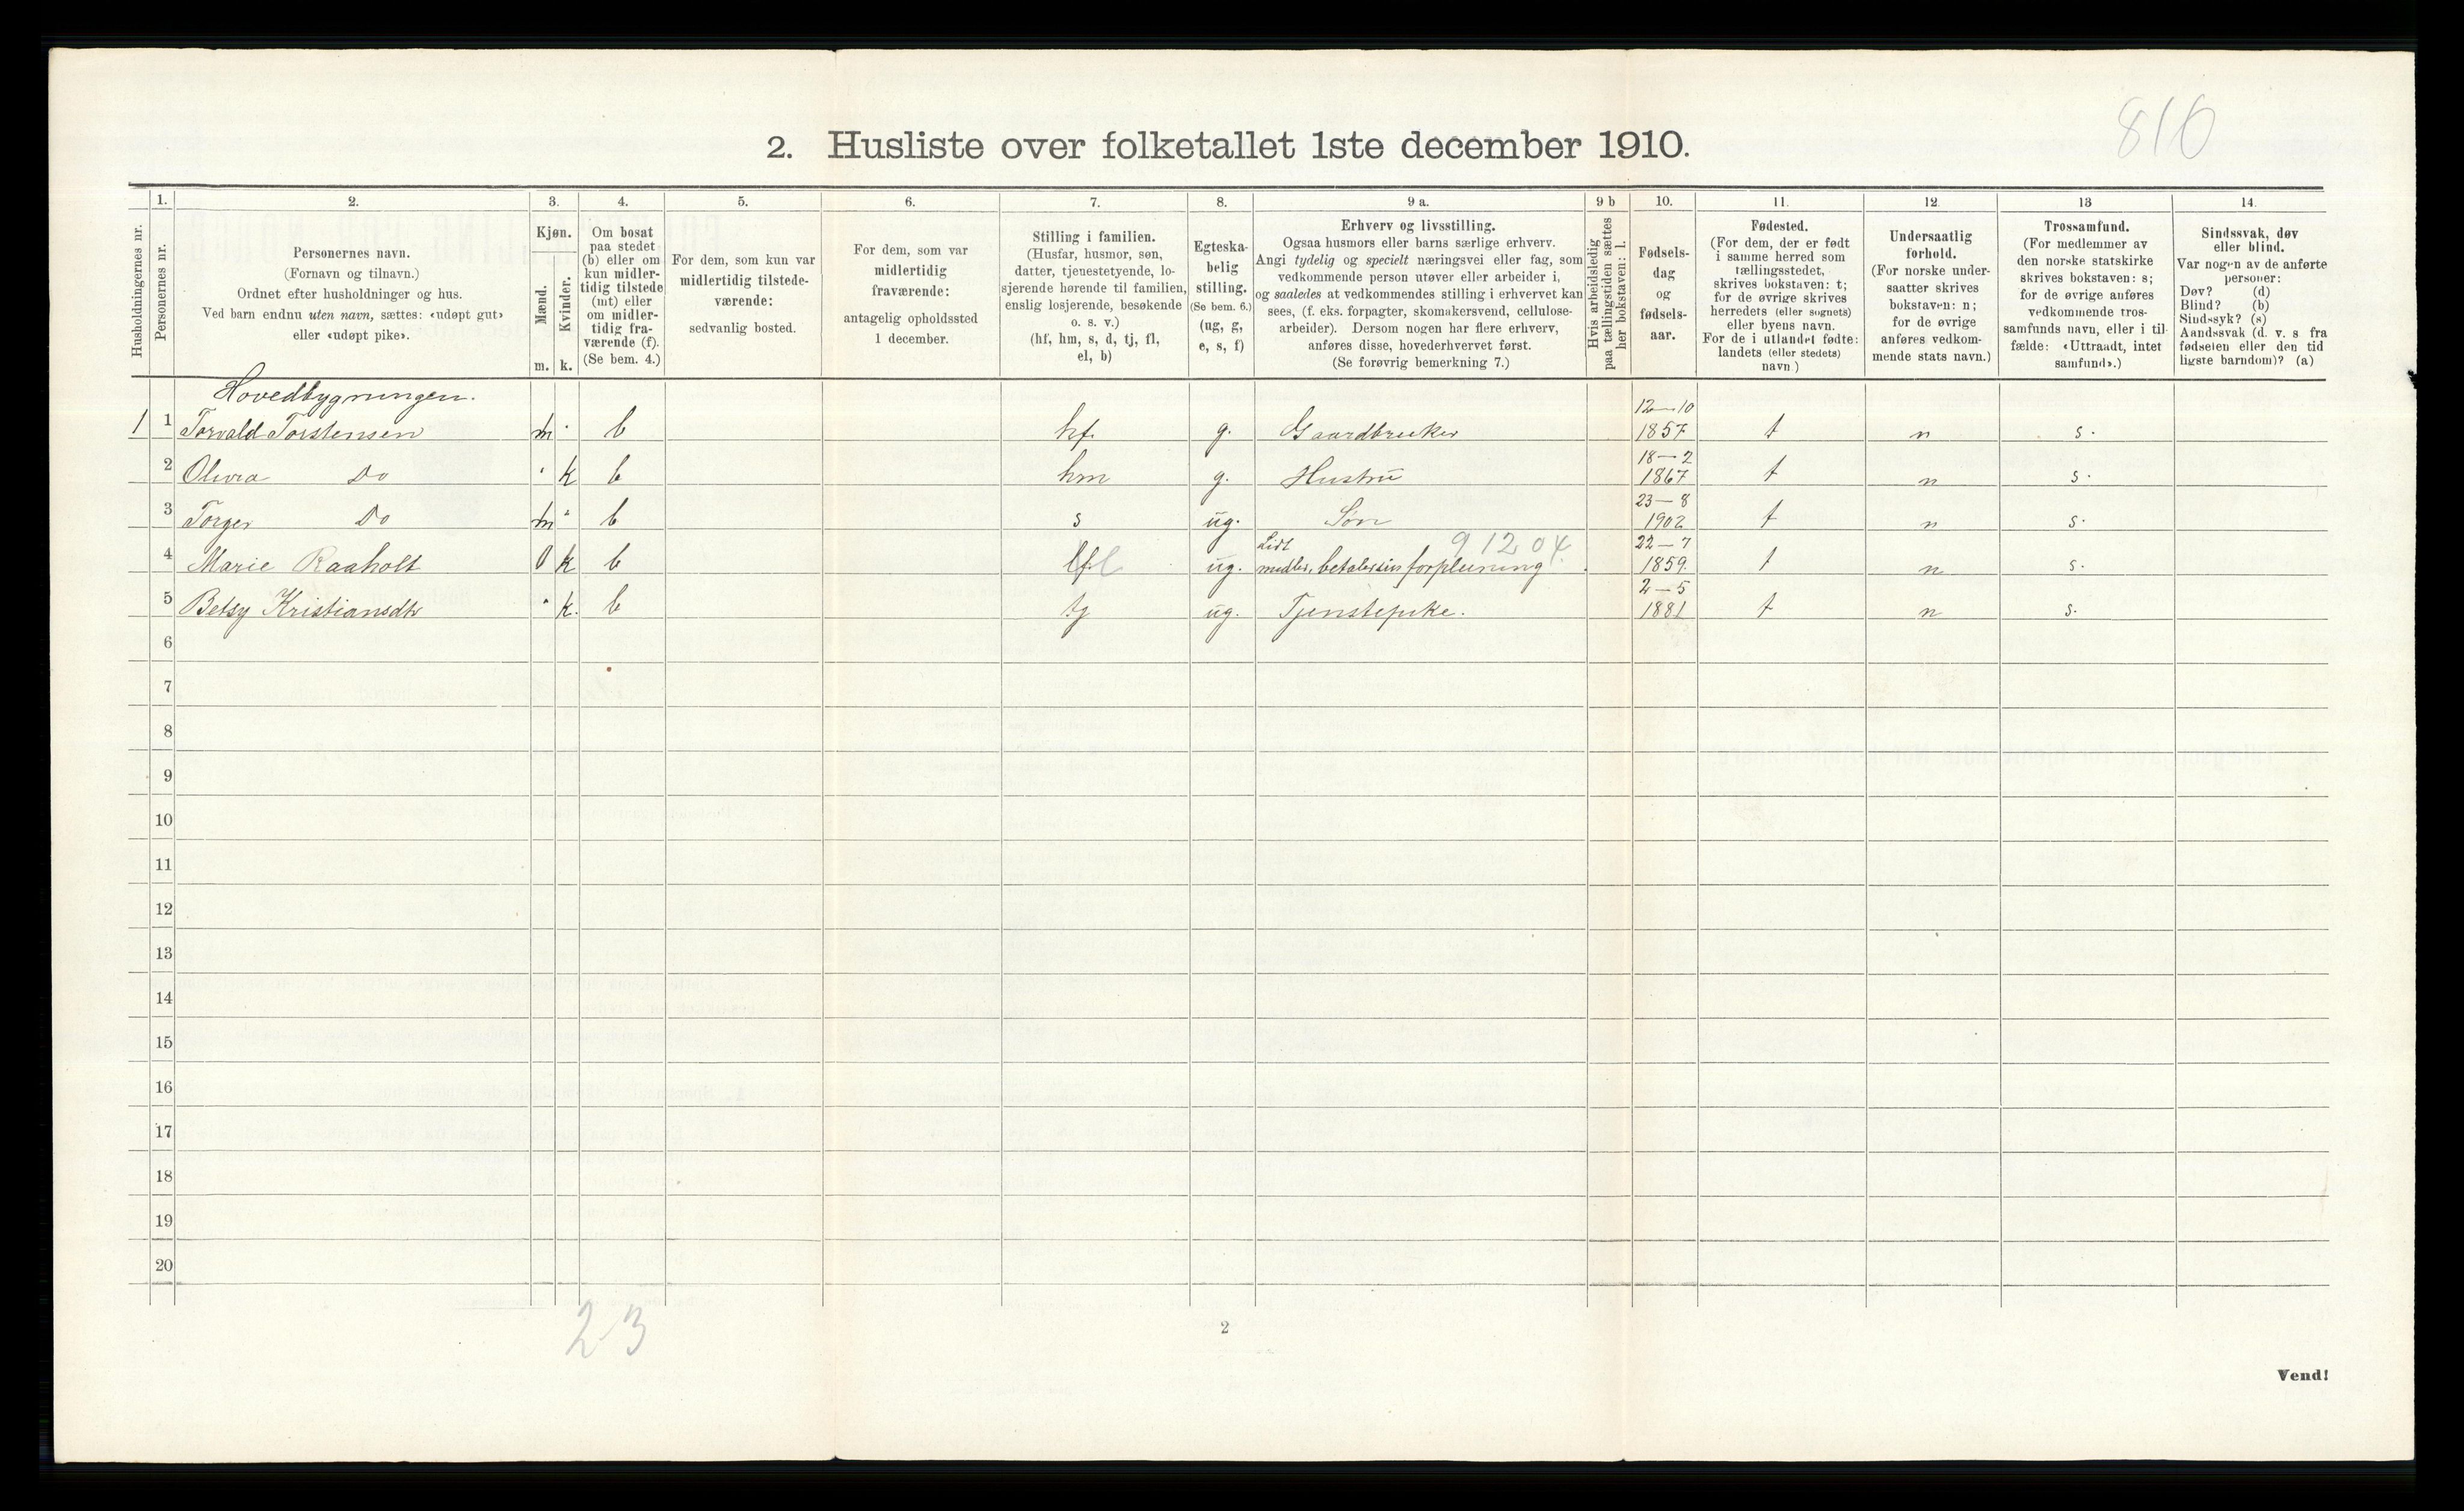 810
2. Husliste over folketallet 1ste december 1910.
Husholdningernes nr.
1.
Personernes nr.
2.
Personernes navn.
(Fornavn og tilnavn.)
Ordnet efter husholdninger og hus.
Ved barn endnu uten navn, sættes: «udøpt gut»
eller «udøpt pike».
3.
Kjøn.
Mænd.
Kvinder.
m. k.
4.
Om bosat
paa stedet
(b) eller om
kun midler-
tidig tilstede
(mt) eller
om midler-
tidig fra-
værende (f).
(Se bem. 4.)
5.
For dem, som kun var
midlertidig tilstede-
værende:
sedvanlig bosted.
6.
For dem, som var
midlertidig
fraværende:
antagelig opholdssted
1 december.
7.
Stilling i familien.
(Husfar, husmor, søn,
datter, tjenestetyende, lo-
sjerende hørende til familien,
enslig losjerende, besøkende
o. s. v.)
(hf, hm, s, d, tj, fl,
el, b)
8.
Egteska-
belig
stilling.
(Se bem. 6.)
(ug, g,
e, s, f)
9 a.
Erhverv og livsstilling.
Ogsaa husmors eller barns særlige erhverv.
Angi tydelig og specielt næringsvei eller fag, som
vedkommende person utøver eller arbeider i,
og saaledes at vedkommendes stilling i erhvervet kan
sees, (f. eks. forpagter, skomakersvend, cellulose-
arbeider). Dersom nogen har flere erhverv,
anføres disse, hovederhvervet først.
(Se forøvrig bemerkning 7.)
9 b
Hvis arbeidsledig
paa tællingstiden sættes
her bokstaven: l.
10.
Fødsels-
dag
og
fødsels-
aar.
11.
Fødested.
(For dem, der er født
i samme herred som
tællingsstedet,
skrives bokstaven: t;
for de øvrige skrives
herredets (eller sognets)
eller byens navn.
For de i utlandet fødte:
landets (eller stedets)
navn.)
12.
Undersaatlig
forhold.
(For norske under-
saatter skrives
bokstaven: n;
for de øvrige
anføres vedkom-
mende stats navn.)
13
Trossamfund.
(For medlemmer av
den norske statskirke
skrives bokstaven: s;
for de øvrige anføres
vedkommende tros-
samfunds navn, eller i til-
fælde: «Uttraadt, intet
samfund».)
14.
Sindssvak, døv
eller blind.
Var nogen av de anførte
personer:
Døv? (d)
Blind? (b)
Sindssyk? (s)
Aandssvak (d. v. s. fra
fødselen eller den tid
ligste barndom)? (a)
Hovedbygningen.
1 1 Torvald Torstensen m b hf. g. Gaardbruker 12-10 1857 t n s.
2 Olivia Do k b hm g. Hustru 18-2 1867 t n s.
3 Torger Do m b s ug. Søn 23-8 1902 t n s.
4 Marie Raaholt k b ug. 91204 forpleining 22-7 1859 t n s.
5 Betsy Kristiansdtr k. b tj ug. Tjenstepike. 2-5 1881 t n s.
6
7
8
9
10
11
12
13
14
15
16
17
18
19
20
23
2
Vend!